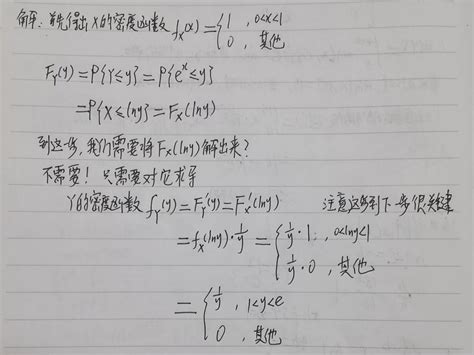 解: 首先得出X的密度函数 fx(x)={1, 0<x<1
0, 其他
F_Y(y)=P{Y≤y}=P{e^x≤y}
=P{X≤lny}=F_X(lny)
到这一步,我们需要将F_X(lny)解出来?
不需要! 只需要对它求导
Y的密度函数f_Y(y)=F_Y'(y)=F_X'(lny) 注意这步到下一步很关键
=f_X(lny)·1/y={1/y·1, 0<lny<1
1/y·0, 其他
={1/y, 1<y<e
0, 其他